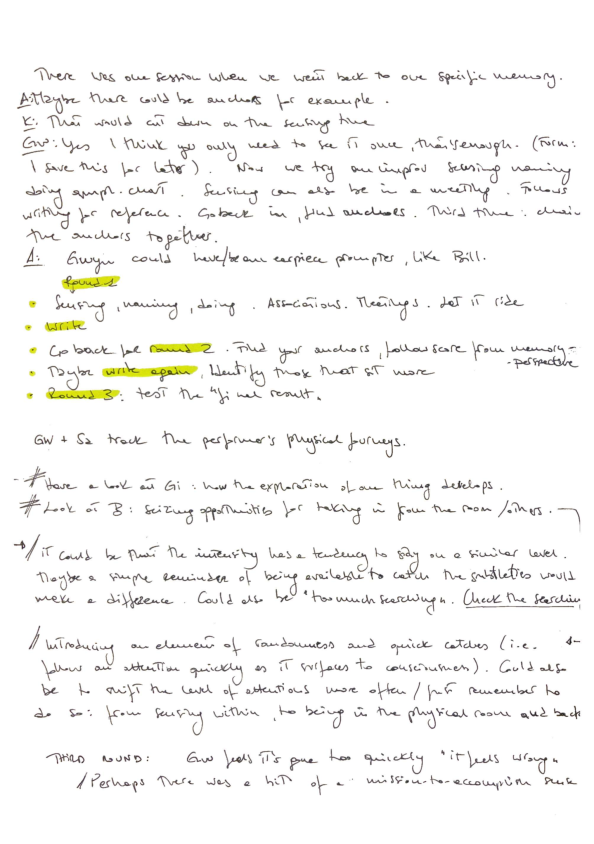 There was one session when we went back to one specific memory.
A: Maybe there could be anchors for example.
K: That would cut down on the sensing time
GW: Yes I think you only need to see it once, that's enough. (Form:
I save this for later). Now we try an improv sensing naming
doing graph. chart. Sensing can also be in a meeting. Follows
writing for reference. Go back in, find anchors. Third time: chain
the anchors together.
A: Gwyn could have/be an earpiece prompter, like Bill.
Round 1
• Sensing, naming, doing. Associations. Meetings. Let it ride
• Write
• Go back for round 2. Find your anchors, follow score from memory-
-perspective
• Maybe write again, identify those that sit more
• Round 3: test the "final result.
GW + Sa track the performer's physical journeys.
- # Have a look at Gi: how the exploration of one thing develops.
# Look at B: seizing opportunities for taking in from the room/others.
→ / it could be that the intensity has a tendency to stay on a similar level.
Maybe a simple reminder of being available to catch the subtleties would
make a difference. Could also be "too much searching". Check the searching
// Introducing an element of randomness and quick catches (i.e.
follow an attention quickly as it surfaces to consciousness). Could also
be to shift the level of attentions more often / just remember to
do so: from sensing within, to being in the physical room and back
THIRD ROUND: GW feels it's gone too quickly "it feels wrong"
/ Perhaps there was a bit of a mission-to-accomplish sense